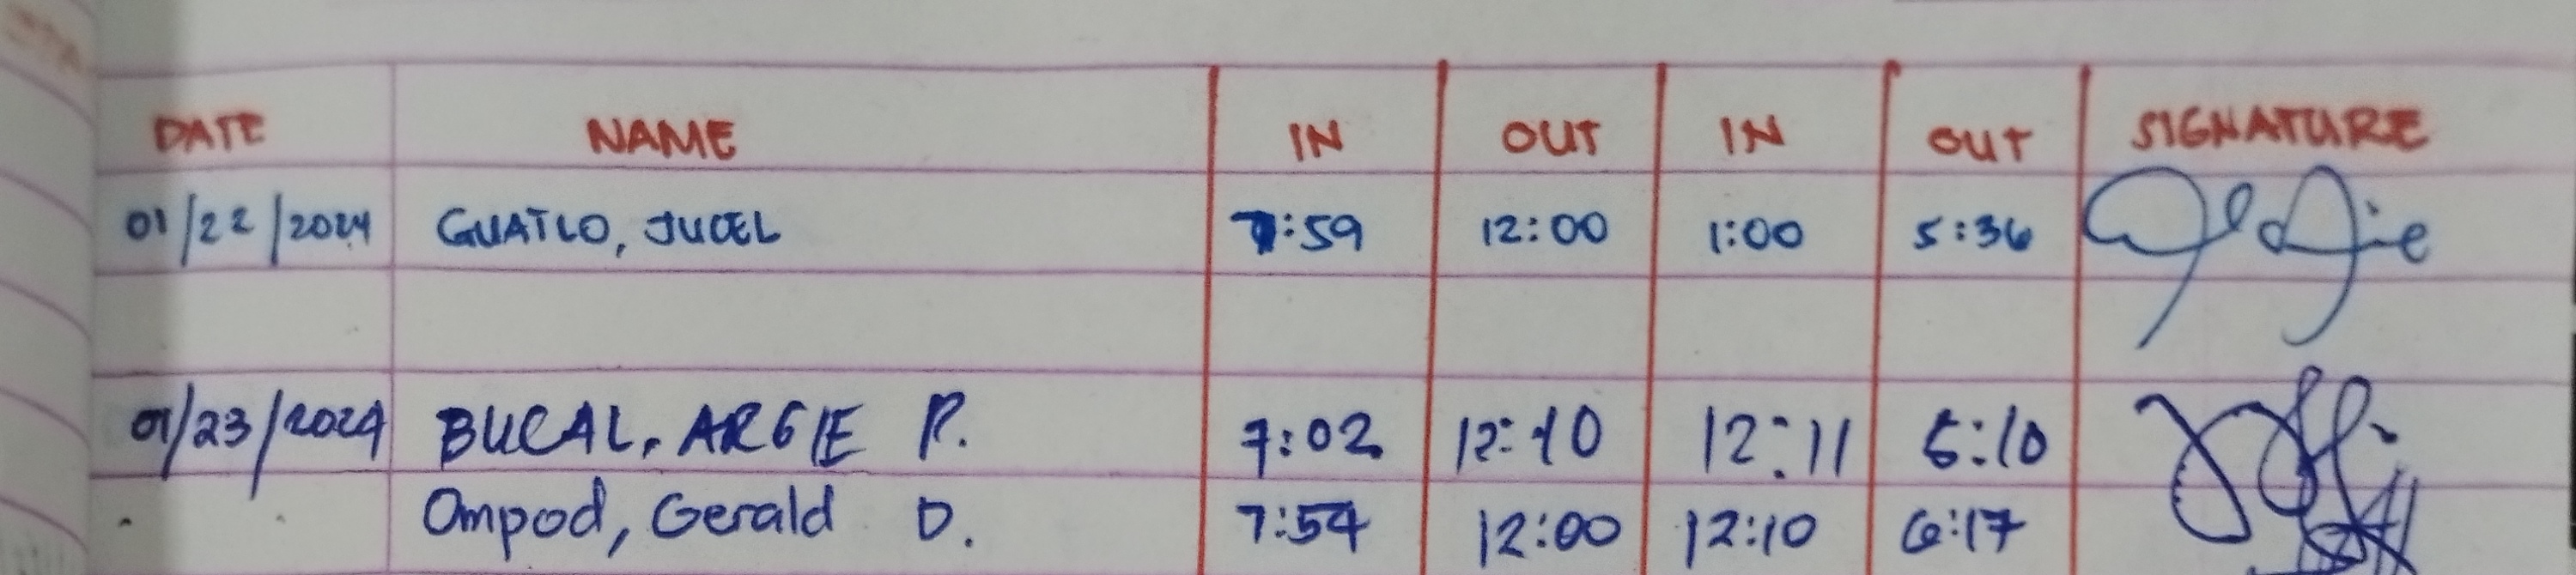 DATE NAME IN OUT IN OUT SIGNATURE
01/22/2024 GUATLO, JUDEL 7:59 12:00 1:00 5:36
01/23/2024 BUCAL, ARGIE P. 7:02 12:10 12:11 5:10
Ompod, Gerald D. 7:54 12:00 12:10 6:17